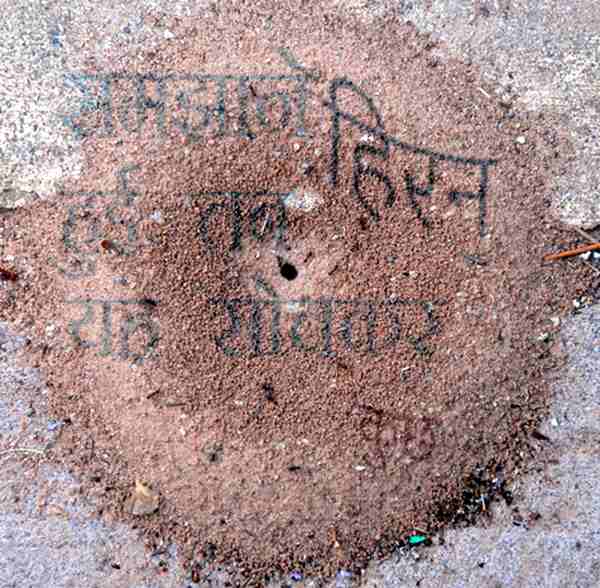 समझाने हिरन
हुई तब
यह सोचकर